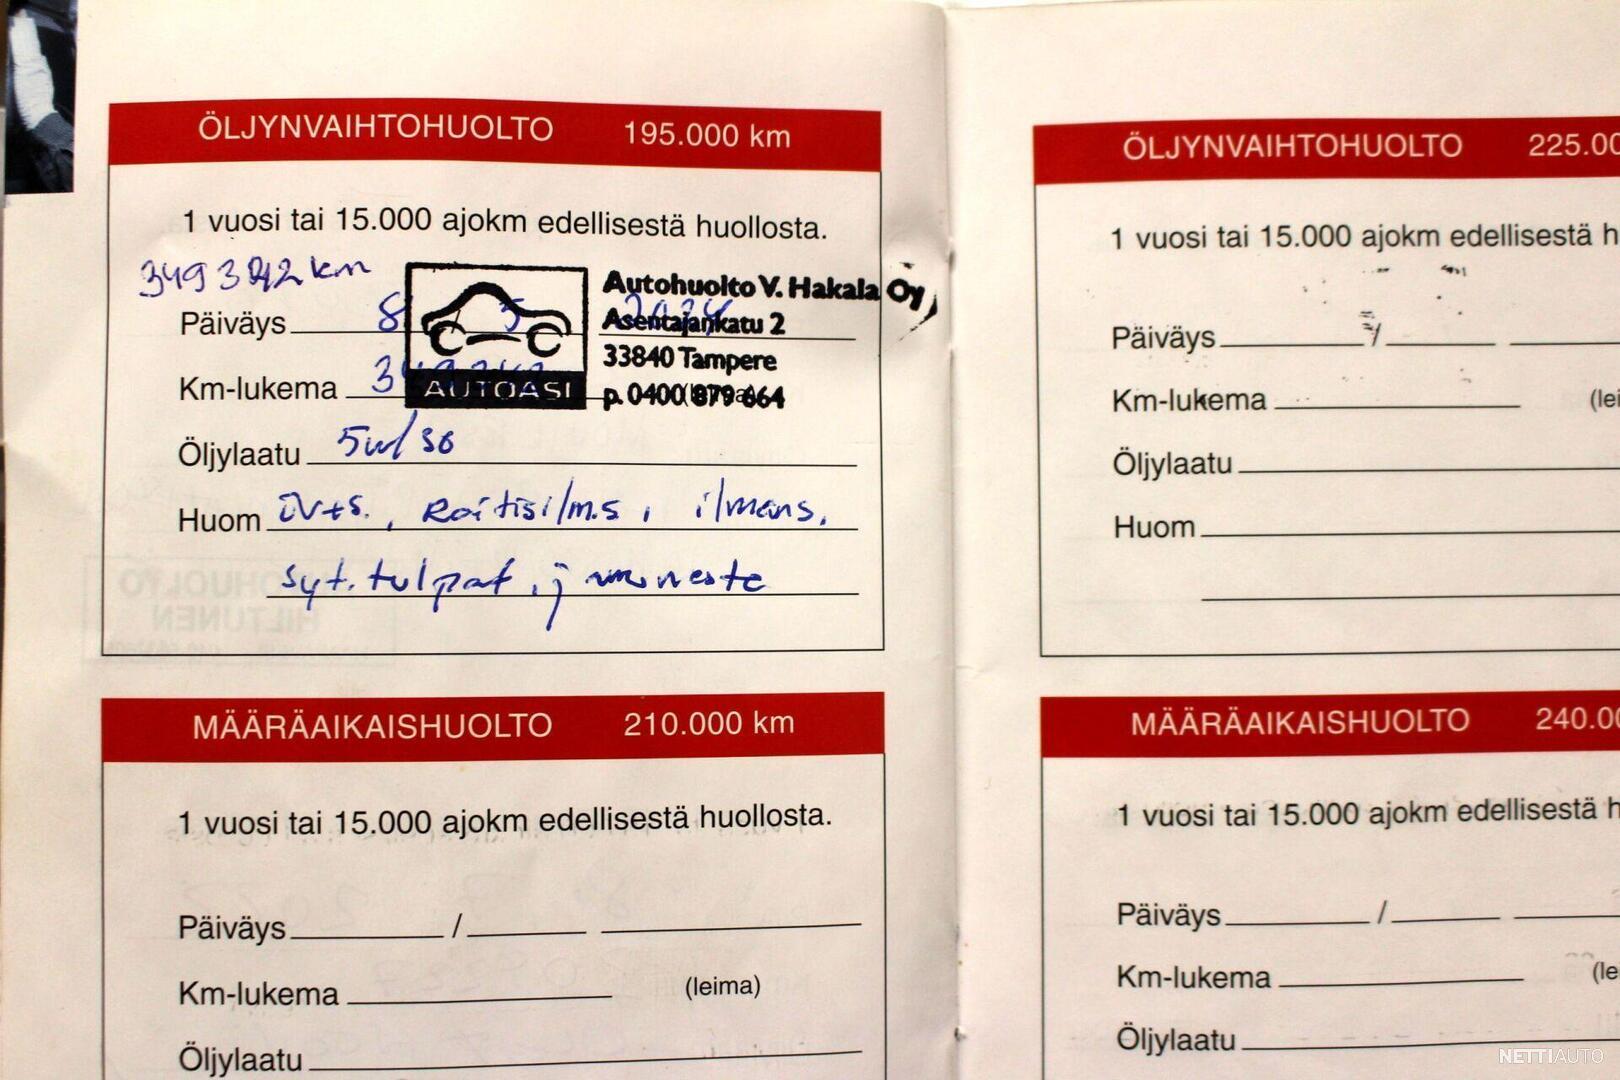 ÖLJYNVAIHTOHUOLTO 195.000 km
1 vuosi tai 15.000 ajokm edellisestä huollosta.
349 342 km
Autohuolto V. Hakala Oy
Päiväys 8 5
Asentajankatu 2
33840 Tampere
Km-lukema
AUTOASI
p. 0400 879 664
Öljylaatu 5w/30
Huom öv+s., Raitisilm.s, ilmans,
syt.tulpat, j
MÄÄRÄAIKAISHUOLTO 210.000 km
1 vuosi tai 15.000 ajokm edellisestä huollosta.
Päiväys /
Km-lukema (leima)
Öljylaatu
ÖLJYNVAIHTOHUOLTO 225.00
1 vuosi tai 15.000 ajokm edellisestä h
Päiväys /
Km-lukema (lei
Öljylaatu
Huom
MÄÄRÄAIKAISHUOLTO 240.00
1 vuosi tai 15.000 ajokm edellisestä h
Päiväys /
Km-lukema (le
Öljylaatu
NETTIAUTO